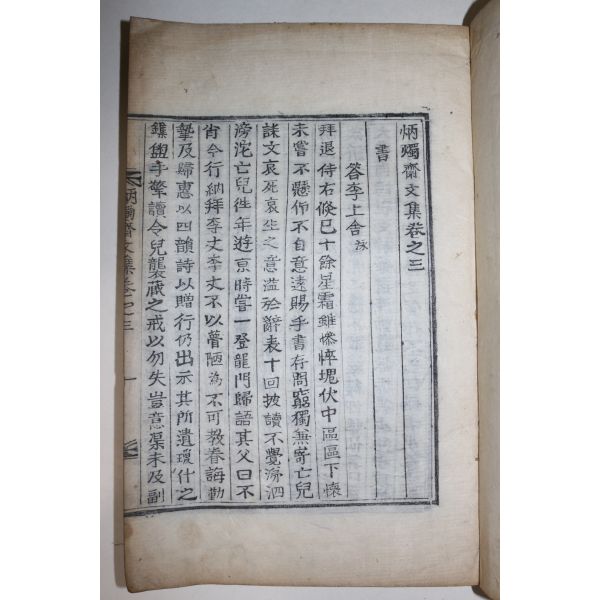 炳燭齋文集卷之三
書
答李上舍 泳
拜退侍右倏已十餘星霜雖慘悴塊伏中區區下懷
未嘗不懸仰不自意遠賜手書存問窮獨無寄亡兒
誄文哀死哀生之意溢於辭表十回披讀不覺涕泗
滂沱亡兒往年遊京時嘗一登龍門歸語其父曰不
肖今行納拜李丈李丈不以瞢陋為不可敎眷誨勤
摯及歸惠以四韻詩以贈行仍出示其所遺瓊什之
鏶盥手擎讀令兒襲藏之戒以勿失豈意渠未及副
炳燭齋文集卷之三
一